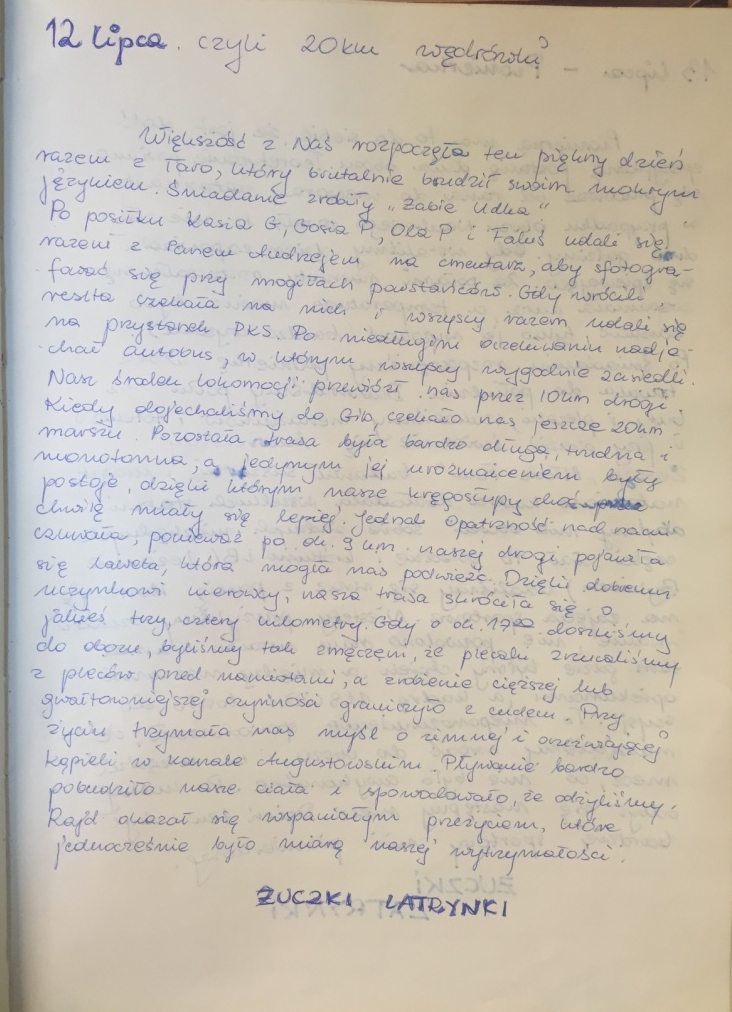 12 lipca. czyli 20km wędrówki
Większość z Nas rozpoczęła ten piękny dzień
razem z Taro, który brutalnie budził swoim mokrym
językiem. Śniadanie zrobiły „Żabie Udka"
Po posiłku Kasia G, Gosia P, Ola P i Faluś udali się
razem z Panem Andrzejem na cmentarz, aby sfotogra-
fować się przy mogiłach powstańców. Gdy wrócili,
reszta czekała na nich i wszyscy razem udali się
na przystanek PKS. Po niedługim oczekiwaniu nadje-
chał autobus, w którym wszyscy wygodnie zasiedli.
Nasz środek lokomocji przewiózł nas przez 10km drogi.
Kiedy dojechaliśmy do Gib, czekało nas jeszcze 20km
marszu. Pozostała trasa była bardzo długa, trudna i
monotonna, a jedynym jej urozmaiceniem były
postoje, dzięki którym nasze kręgosłupy choć
chwilę miały się lepiej. Jednak Opatrzność nad nami
czuwała, ponieważ po ok. 9 km naszej drogi pojawiła
się laweta, która mogła nas podwieźć. Dzięki dobremu
uczynkowi kierowcy, nasza trasa skróciła się o
jakieś trzy, cztery kilometry. Gdy o ok. 19⁰⁰ doszliśmy
do obozu, byliśmy tak zmęczeni, że plecaki zrzucaliśmy
z pleców przed namiotami, a zrobienie cięższej lub
gwałtowniejszej czynności graniczyło z cudem. Przy
życiu trzymała nas myśl o zimnej i orzeźwiającej
kąpieli w kanale Augustowskim. Pływanie bardzo
pobudziło nasze ciała i spowodowało, że odżyliśmy.
Rajd okazał się wspaniałym przeżyciem, które
jednocześnie było miarą naszej wytrzymałości.
ŻUCZKI LATRYNKI